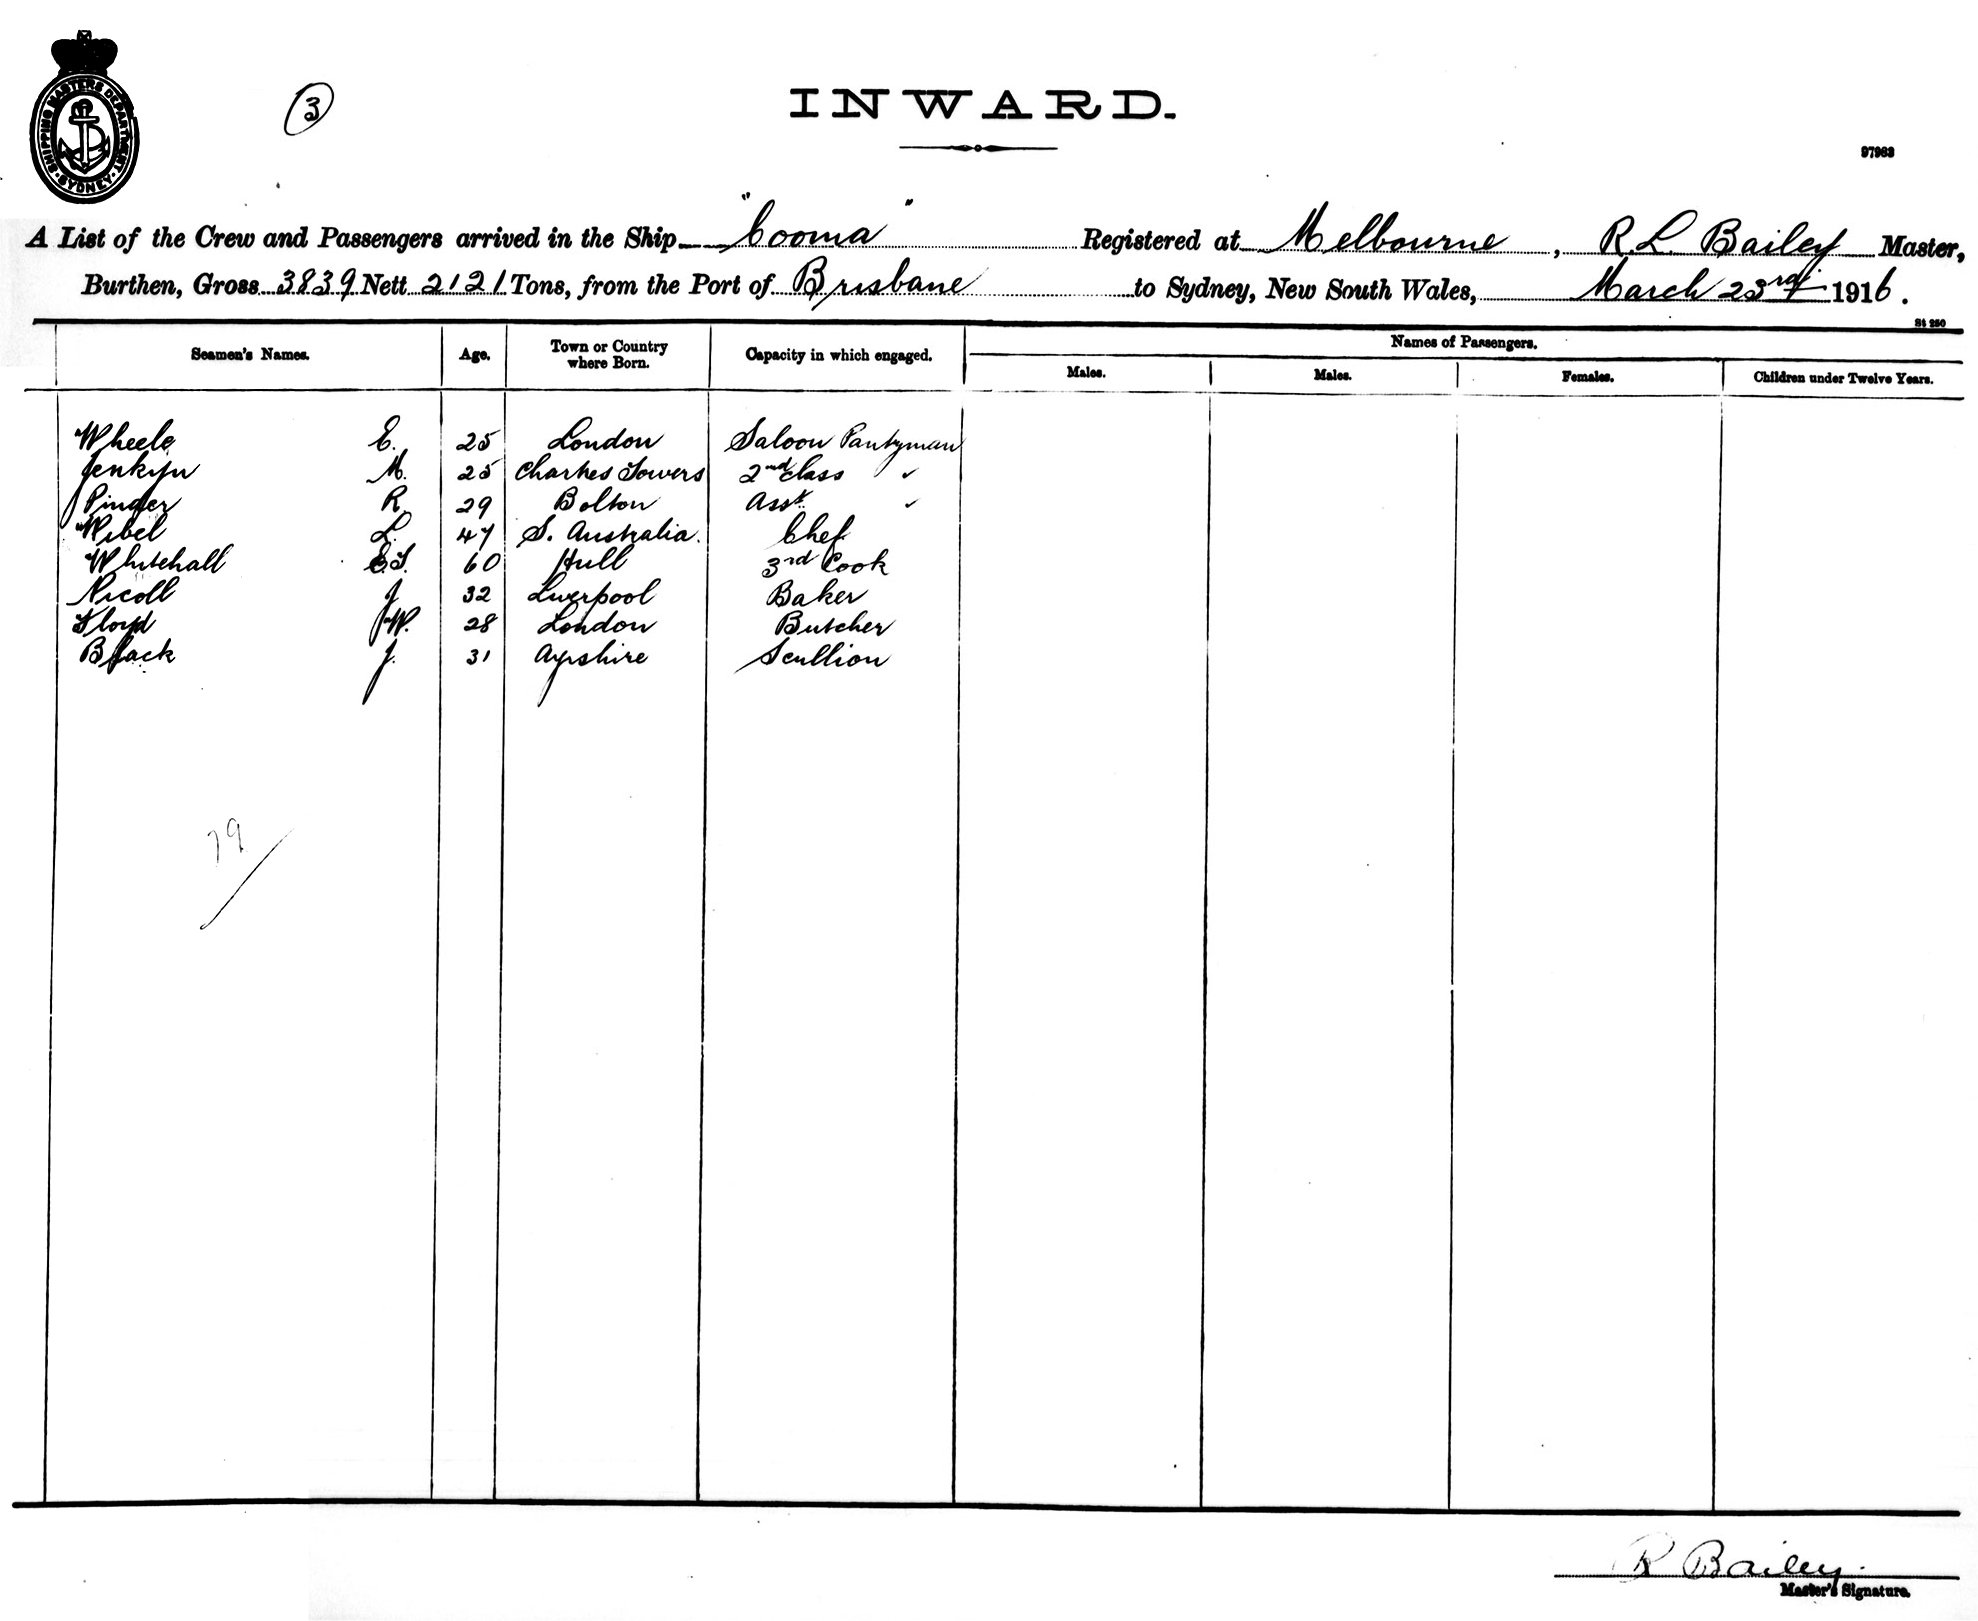 SHIPPING MASTERS DEPARTMENT · SYDNEY ·
3
INWARD.
97963
A List of the Crew and Passengers arrived in the Ship "Cooma" Registered at Melbourne, R. L. Bailey Master,
Burthen, Gross 3839 Nett 2121 Tons, from the Port of Brisbane to Sydney, New South Wales, March 23rd 1916.
St 250
Seamen's Names. Age. Town or Country where Born. Capacity in which engaged. Names of Passengers.
Males. Males. Females. Children under Twelve Years.
Wheele E. 25 London Saloon Pantryman
Jenkyn M. 25 Charters Towers 2nd Class "
Pinder R. 29 Bolton Asst. "
Wibel L. 47 S. Australia. Chef
Whitehall E.T. 60 Hull 3rd Cook
Nicoll J 32 Liverpool Baker
Floyd W. 28 London Butcher
Black J. 31 Ayrshire Scullion
79
R Bailey.
Master's Signature.